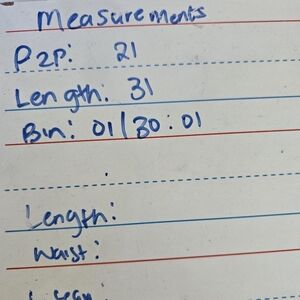 Measurements
P2P: 21
Length: 31
Bin: 01/30:01
Length:
Waist: